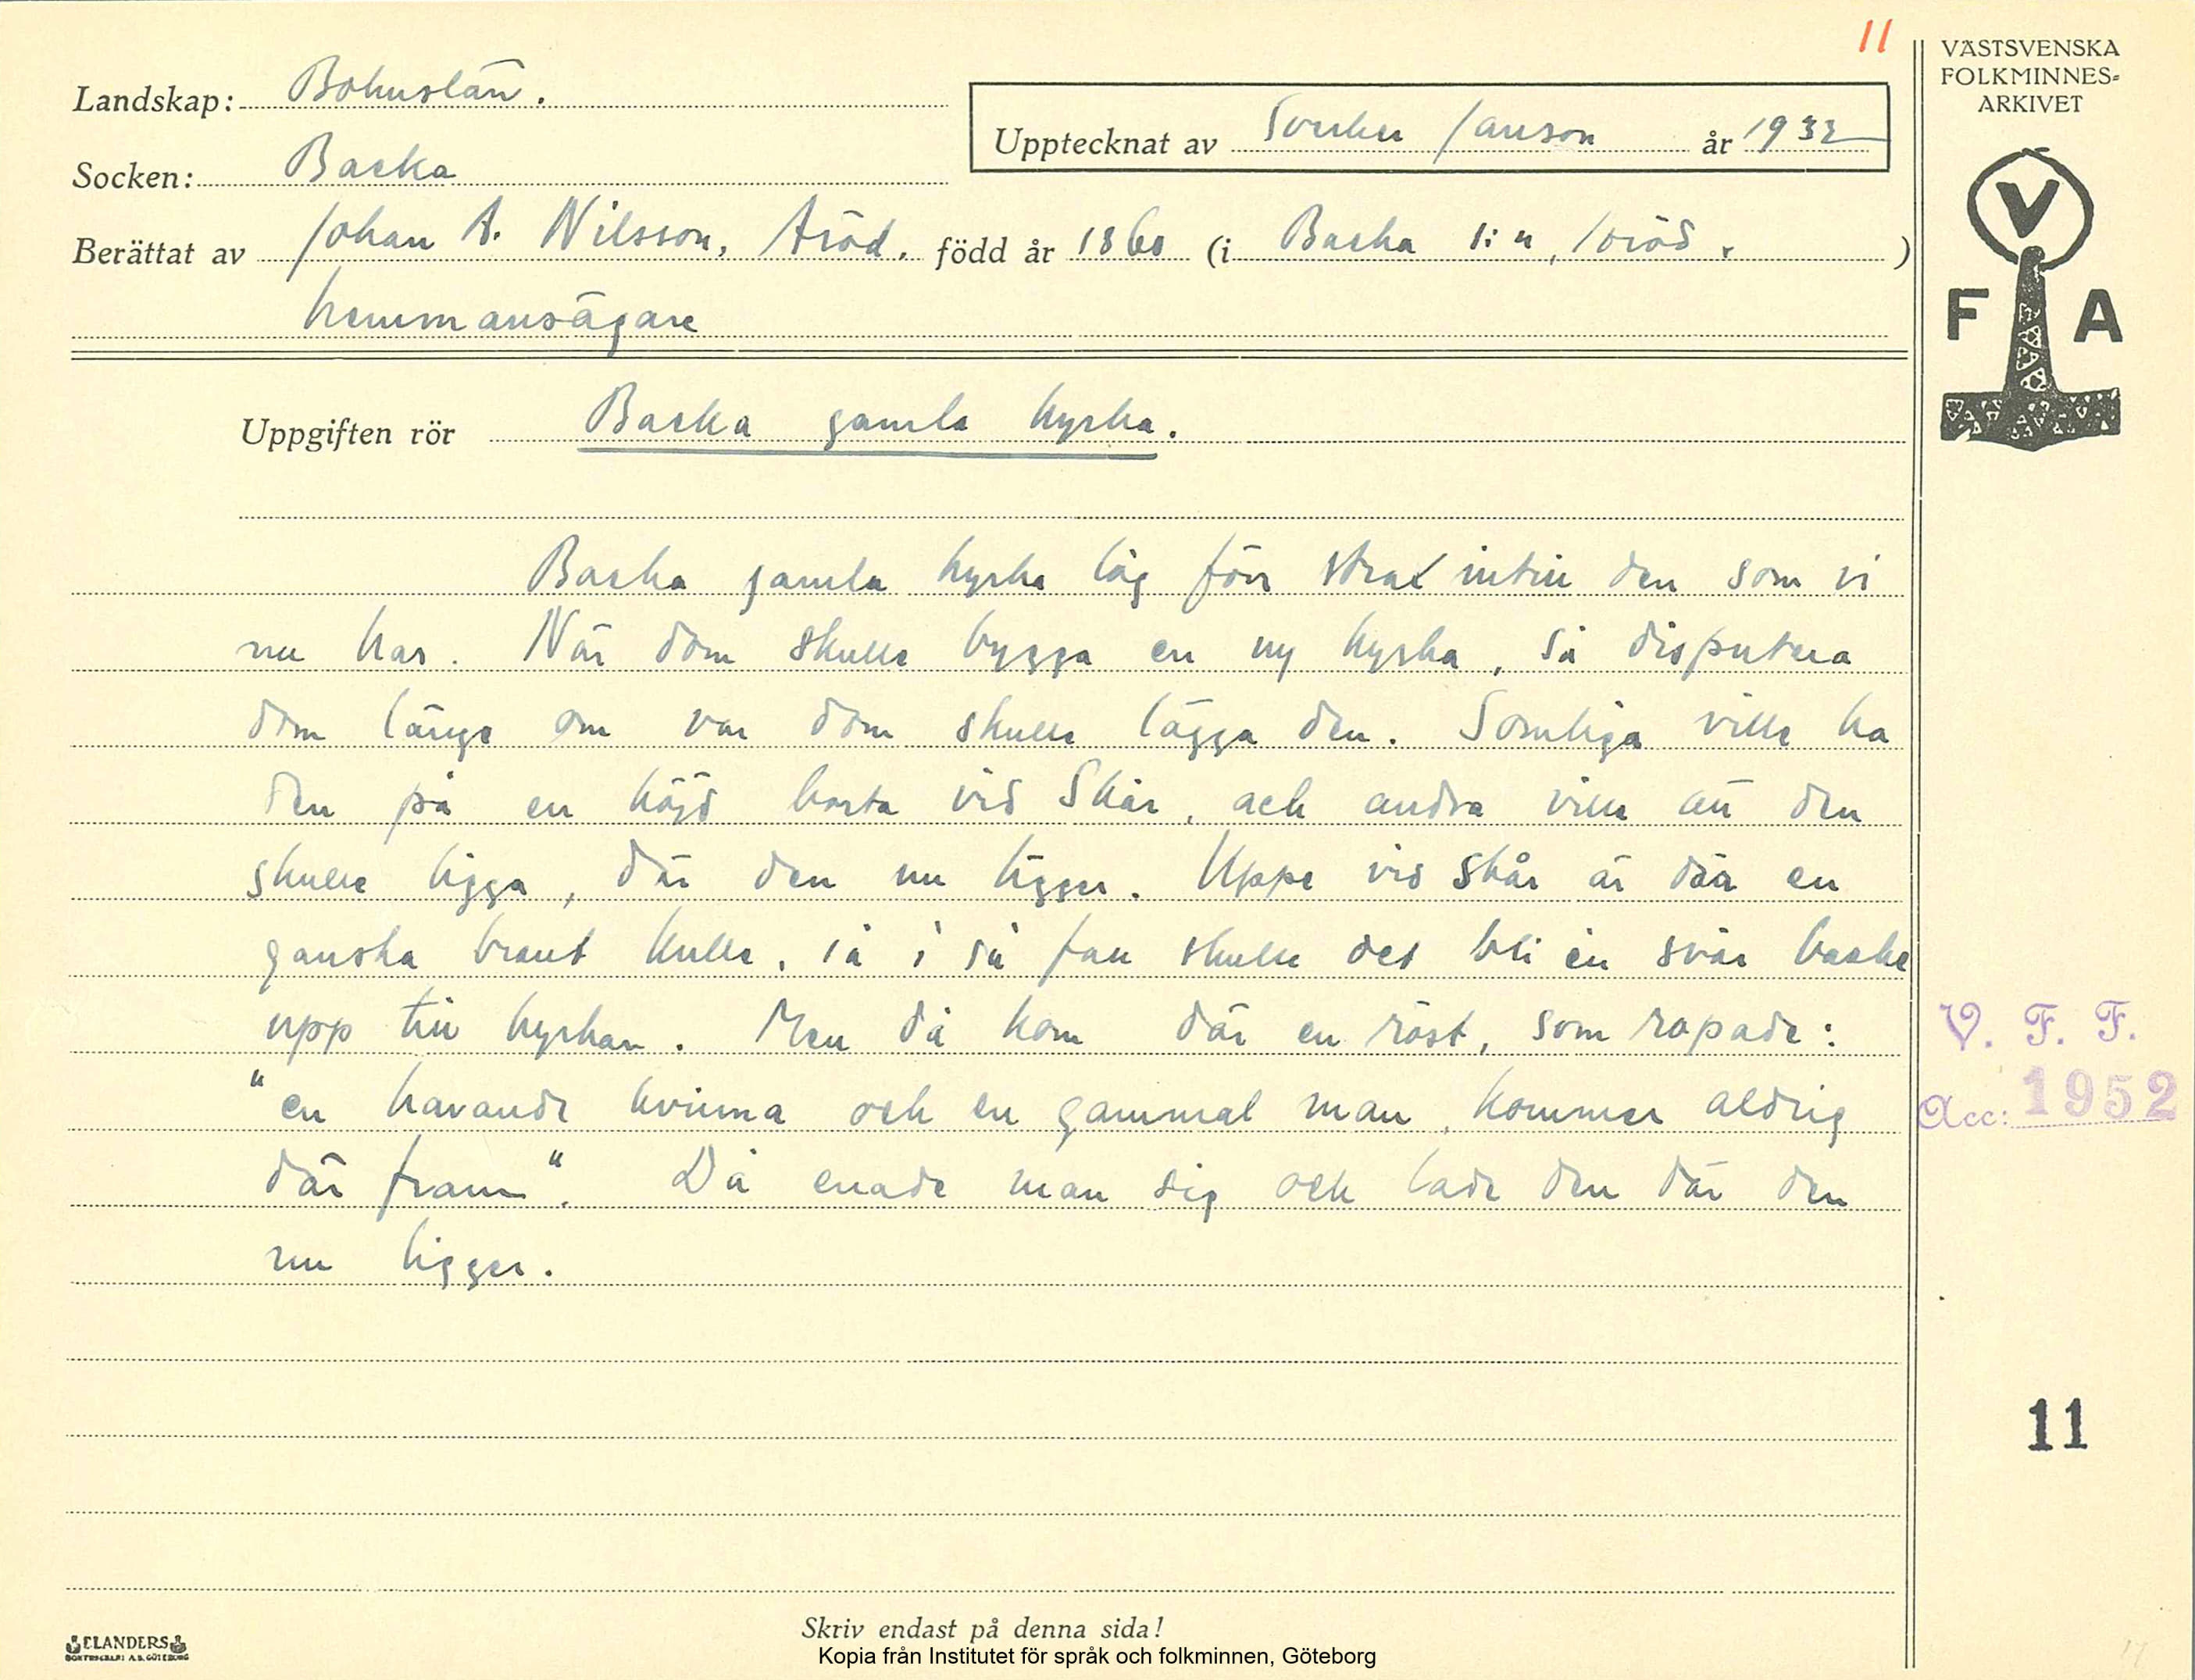 11
VÄSTSVENSKA
FOLKMINNES-
ARKIVET
Landskap: Bohuslän.
Upptecknat av Sverker Janson år 1932
Socken: Backa
Berättat av Johan A. Nilsson, Aröd. född år 1860 (i Backa s:n, )
hemmansägare
V
F A
Uppgiften rör Backa gamla kyrka.
Backa gamla kyrka låg förr strax intill den som vi
nu har. När dom skulle bygga en ny kyrka, så disputera
dom länge om var dom skulle lägga den. Somliga ville ha
den på en höjd borta vid Skår, och andra ville att den
skulle ligga, där den nu ligger. Uppe vid Skår är där en
ganska brant kulle, så i så fall skulle det bli en svår backe
upp till kyrkan. Men då kom där en röst, som ropade:
"en havande kvinna och en gammal man, kommer aldrig
där fram". Då enade man sig och lade den där den
nu ligger.
V. F. F.
Acc: 1952
11
Skriv endast på denna sida!
ELANDERS
BOKTRYCKERI A.B. GÖTEBORG
Kopia från Institutet för språk och folkminnen, Göteborg